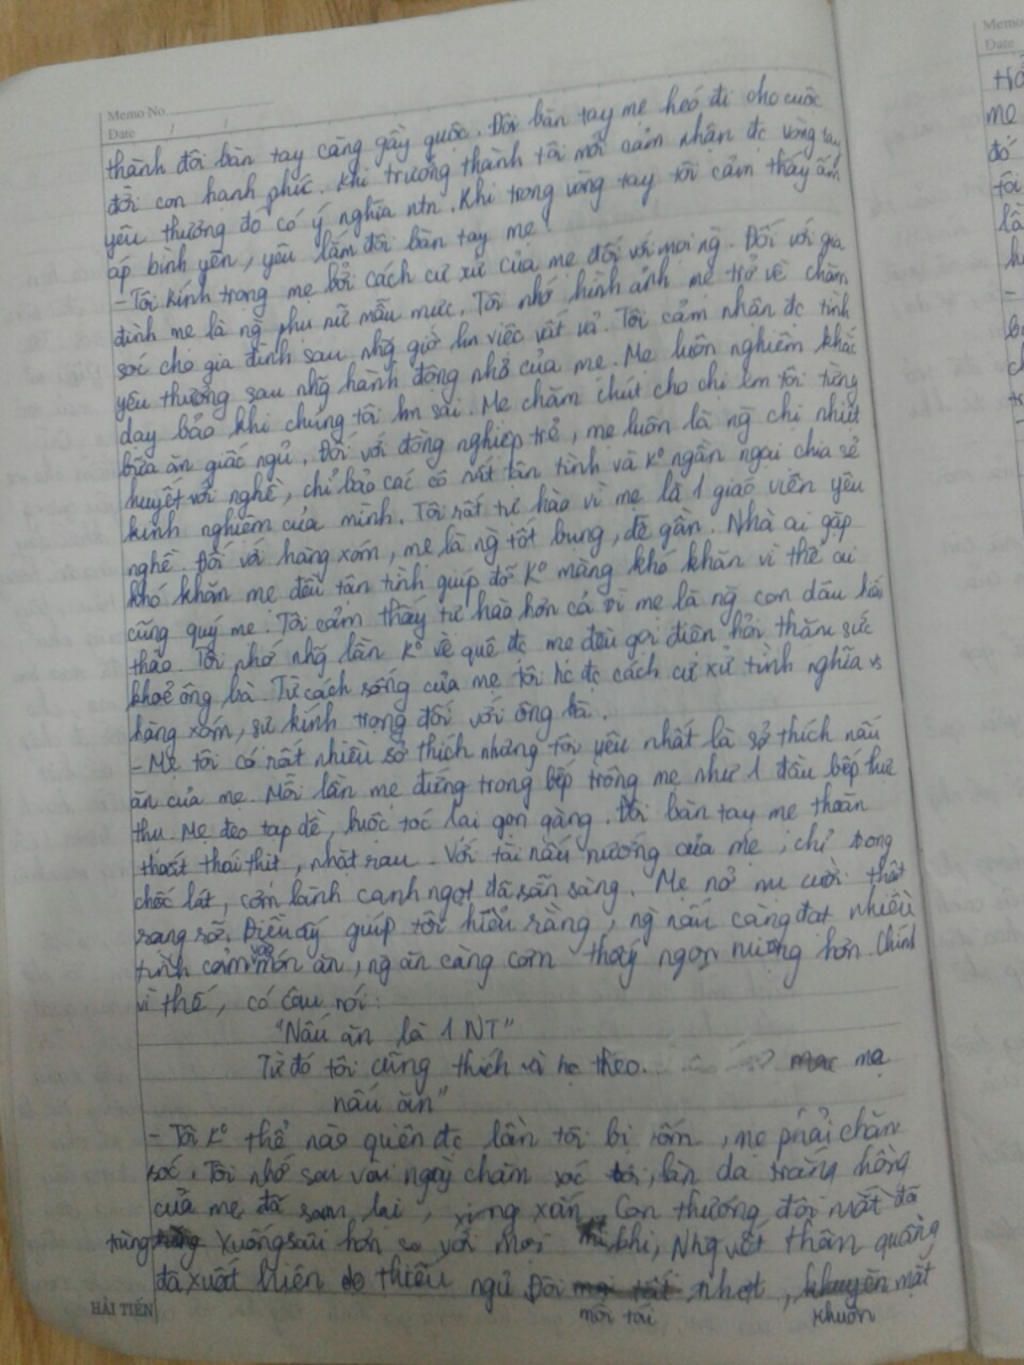 Memo No.
Date / /
thành đôi bàn tay càng gầy guộc. Đôi bàn tay mẹ héo đi cho cuộc
đời con hạnh phúc. Khi trưởng thành tôi mới cảm nhận đc vòng tay
yêu thương đó có ý nghĩa ntn. Khi trong vòng tay tôi cảm thấy ấm
áp bình yên, yêu lắm đôi bàn tay mẹ!
- Tôi kính trọng mẹ bởi cách cư xử của mẹ đối với mọi ng. Đối với gia
đình mẹ là ng phụ nữ mẫu mực. Tôi nhớ hình ảnh mẹ trở về chăm
sóc cho gia đình sau nhg giờ lm việc vất vả. Tôi cảm nhận đc tình
yêu thương sau nhg hành động nhỏ của mẹ. Mẹ luôn nghiêm khắc
dạy bảo khi chúng tôi lm sai. Mẹ chăm chút cho chị em tôi từng
bữa ăn giấc ngủ. Đối với đồng nghiệp trẻ, mẹ luôn là ng chị nhiệt
huyết với nghề, chỉ bảo các cô rất tận tình và Kº ngần ngại chia sẻ
kinh nghiệm của mình. Tôi rất tự hào vì mẹ là 1 giáo viên yêu
nghề. Đối với hàng xóm, mẹ là ng tốt bụng, dễ gần. Nhà ai gặp
khó khăn mẹ đều tận tình giúp đỡ Kº màng khó khăn vì thế ai
cũng quý mẹ. Tôi cảm thấy tự hào hơn cả vì mẹ là ng con dâu hiếu
thảo. Tôi nhớ nhg lần Kº về quê đc mẹ đều gọi điện hỏi thăm sức
khoẻ ông bà. Từ cách sống của mẹ tôi hc đc cách cư xử tình nghĩa vs
hàng xóm, sự kính trọng đối với ông bà.
- Mẹ tôi có rất nhiều sở thích nhưng tôi yêu nhất là sở thích nấu
ăn của mẹ. Mỗi lần mẹ đứng trong bếp trông mẹ như 1 đầu bếp thực
thụ. Mẹ đeo tạp dề, buộc tóc lại gọn gàng. Đôi bàn tay mẹ thoăn
thoắt thái thịt, nhặt rau. Với tài nấu nướng của mẹ, chỉ trong
chốc lát, cơm lành canh ngọt đã sẵn sàng. Mẹ nở nụ cười thật
rạng rỡ. Điều ấy giúp tôi hiểu rằng, ng nấu càng đạt nhiều
tình cảm vào món ăn, ng ăn càng cảm thấy ngon miệng hơn. Chính
vì thế, có câu nói:
"Nấu ăn là 1 NT"
Từ đó tôi cũng thích và học theo. mẹ
nấu ăn"
- Tôi Kº thể nào quên đc lần tôi bị ốm, mẹ phải chăn
sóc. Tôi nhớ sau vài ngày chăm sóc tôi, làn da trắng hồng
của mẹ đã sạm lại, xưng xấn. Con thương đôi mắt đã
trùng xuống sâu hơn so với mọi khi, Nhg vết thâm quầng
đã xuất hiện do thiếu ngủ. Đôi nhợt, khuyên mặt
môi tái khuôn
HẢI TIẾN
Memo
Date
mẹ
đó
tôi